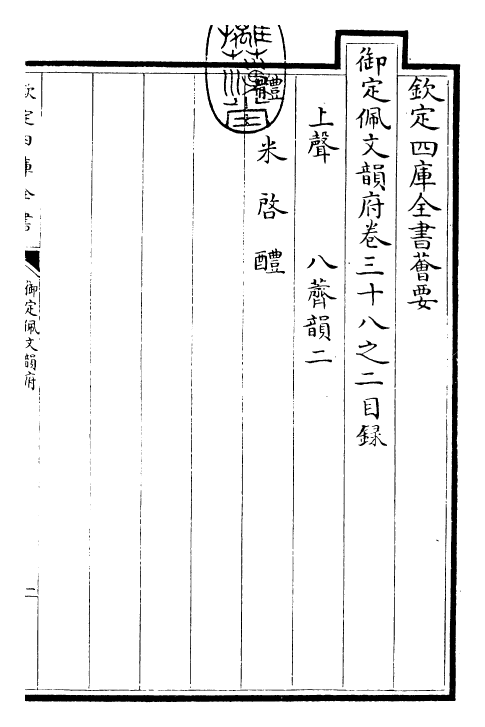 欽定四庫全書薈要
御定佩文韻府卷三十八之二目錄
上聲　八薺韻二
體米啓醴
欽定四庫全書
御定佩文韻府